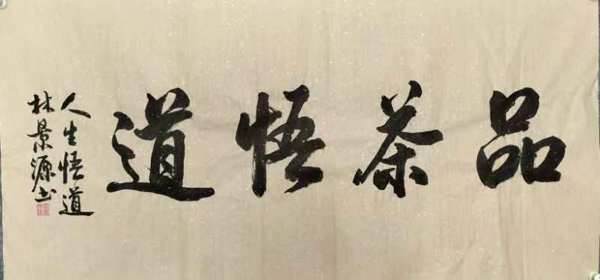 品茶悟道
人生悟道
林景源书